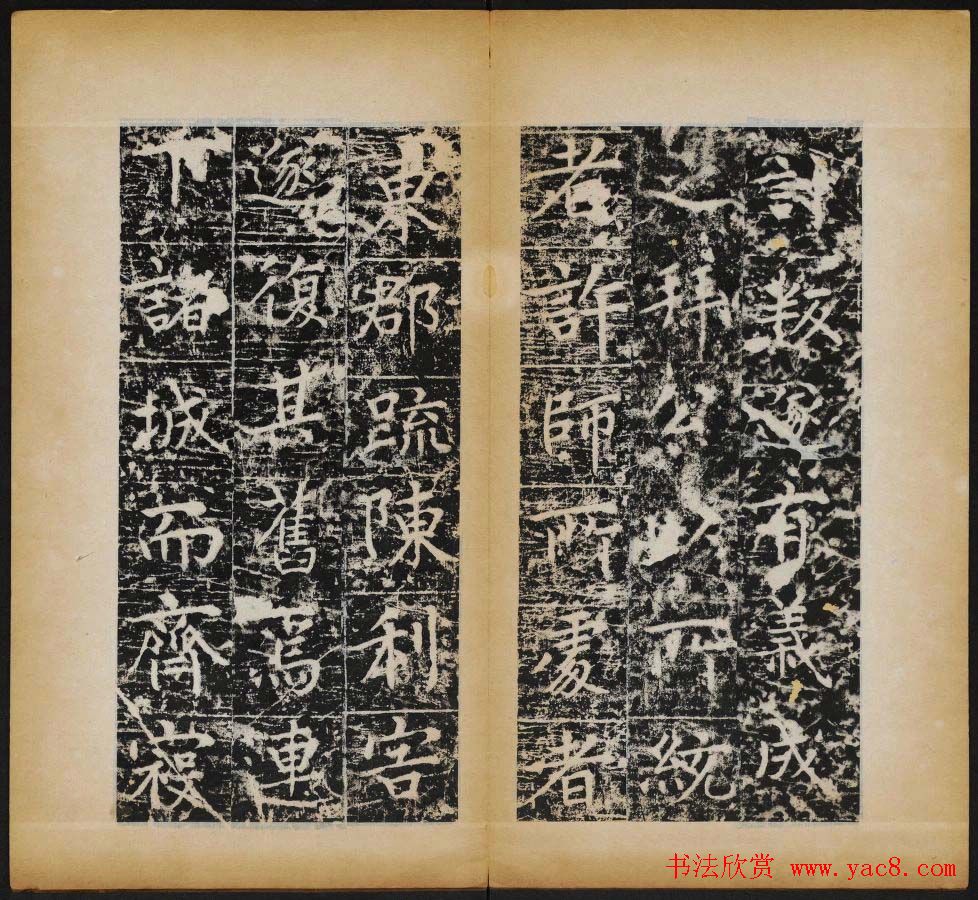 討叛遂有義成
之拜公以所統
者許師所處者
東郡疏陳利害
遂復其舊焉連
下諸城而齊寇
书法欣赏 www.yac8.com